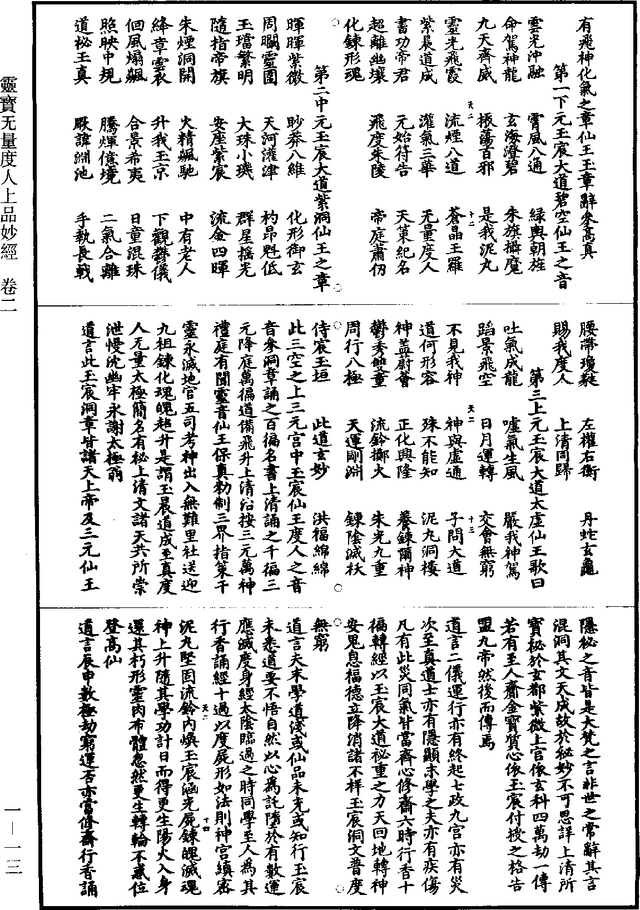 有飛神化氣之章仙王玉章辭參高真
第一下元玉宸大道碧空仙王之音
雲光沖融 霄風八通 綠輿朝旌
命駕神龍 玄海澄碧 朱旗攝魔
九天齊威 振蕩百邪 是我泥丸
靈光飛霞 流煙八道 蒼晶玉羅
紫晨道成 灌氣三華 无量度人
書功帝君 元始符告 天篆紀名
超離幽壤 飛度朱陵 帝庭蕭仞
化鍊形魂
第二中元玉宸大道紫洞仙王之章
暉暉紫微 眇莽八維 化形御玄
周閱靈圖 天河灌津 杓昂魁低
玉璫繁明 大珠小璣 群星搖光
隨指帝旗 安座紫宸 流金四暉
朱煙洞開 火精飆馳 中有老人
絳章雲裘 升我玉京 下觀磬儀
佪風塌飆 合景希夷 日童混珠
照映中規 騰輝億境 二氣合離
道祕玉真 厥諱淵池 手執長戟
腰帶瓊 左權右衡 丹蛇玄龜
賜我度人 上清同歸
第三上元玉宸大道太虛仙王歌曰
吐氣成龍 噓氣生風 嚴我神駕
蹈景飛空 日月運轉 交會無窮
不見我神 神與虛通 子問大道
道何形容 殊不能知 泥丸洞樓
神蓋蔚會 正化興隆 養鍊爾神
鬱秀童 流鈴擲火 朱光九重
周行八極 天運剛淵 鍊陰滅袄
侍宸玉垣 此道玄妙 洪福綿綿
此三空之上三元宮中玉宸仙王度人之音
音參洞章誦之百徧名書上清誦之千徧三
元降庭萬徧道備飛升上清沿按三元萬神
禮庭有聞靈音仙王保真勑制三界指策千
靈永滅地官五司考神出入無難里社送迎
九祖鍊化魂魄超升是謂玉晨道成至真度
人无量太極簡名有祕上清文諸天共所崇
泄慢沈幽牢永謝太極翁
道言此玉宸洞章皆諸天上帝及三元仙王
隱祕之音皆是大梵之言非世之常辭其言
混洞其文天成故於祕妙不可思詳上清所
寶祕於玄都紫微上宮依玄科四萬劫一傳
若有至人齎金寶質心依玉宸付授之格告
盟九帝然後而傳焉
道言二儀運行亦有終起七政九宮亦有災
次至真道士亦有隱顯末學之夫亦有疾傷
凡有此災同氣皆當齊心修齋六時行香十
福轉經以玉宸大道祕重之力天回地轉神
安鬼息福德立降消諸不祥玉宸洞文普度
無窮
道言夫末學道淺或仙品未充或知行玉宸
未悉道要不悟自然以心為託墮於有數運
應滅度身經太陰臨過之時同學至人為其
行香誦經十過以度屍形如法則神宮縝密
泥丸堅固流鈴內煥玉宸涵光屍鍊魄滅魂
神上升隨其學功計日而得更生陽火入身
還其朽形靈肉布體忽然更生轉輪不滅位
登高仙
道言辰中數極劫窮運否亦當修齋行香誦
靈寶无量度人上品妙經 卷二
一—一三